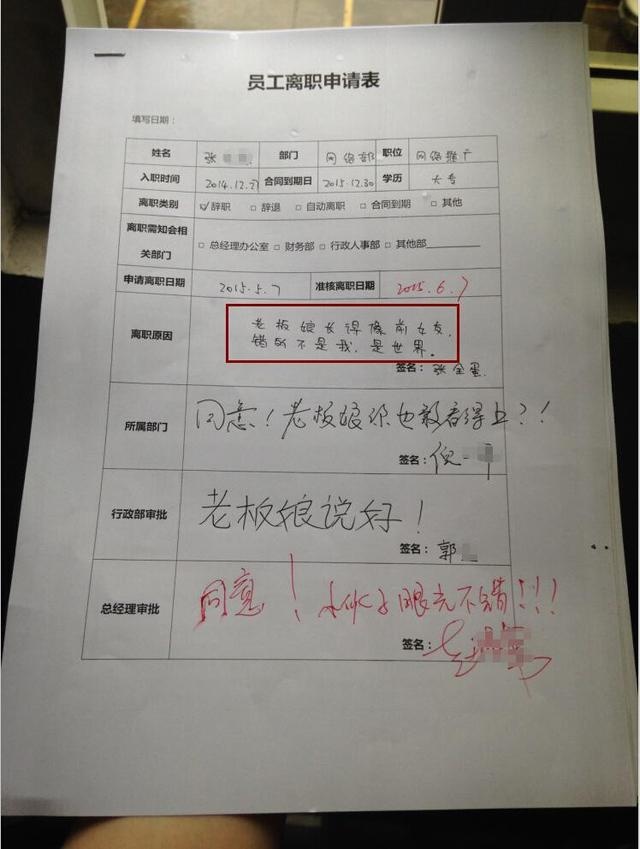 员工离职申请表
填写日期：
姓名 张 部门 网络部 职位 网络推广
入职时间 2014.12.27 合同到期日 2015.12.30 学历 大专
离职类别 ☑辞职 □ 辞退 □ 自动离职 □ 合同到期 □ 其他
离职需知会相
关部门 □ 总经理办公室 □ 财务部 □ 行政人事部 □ 其他部
申请离职日期 2015.5.7 准核离职日期 2015.6.7
离职原因 老板娘长得像前女友,
错的不是我,是世界。
签名：张全蛋
所属部门 同意！老板娘你也敢看得上？！
签名：倪一
行政部审批 老板娘说好！
签名：郭
总经理审批 同意！小伙子眼光不错！！！
签名：